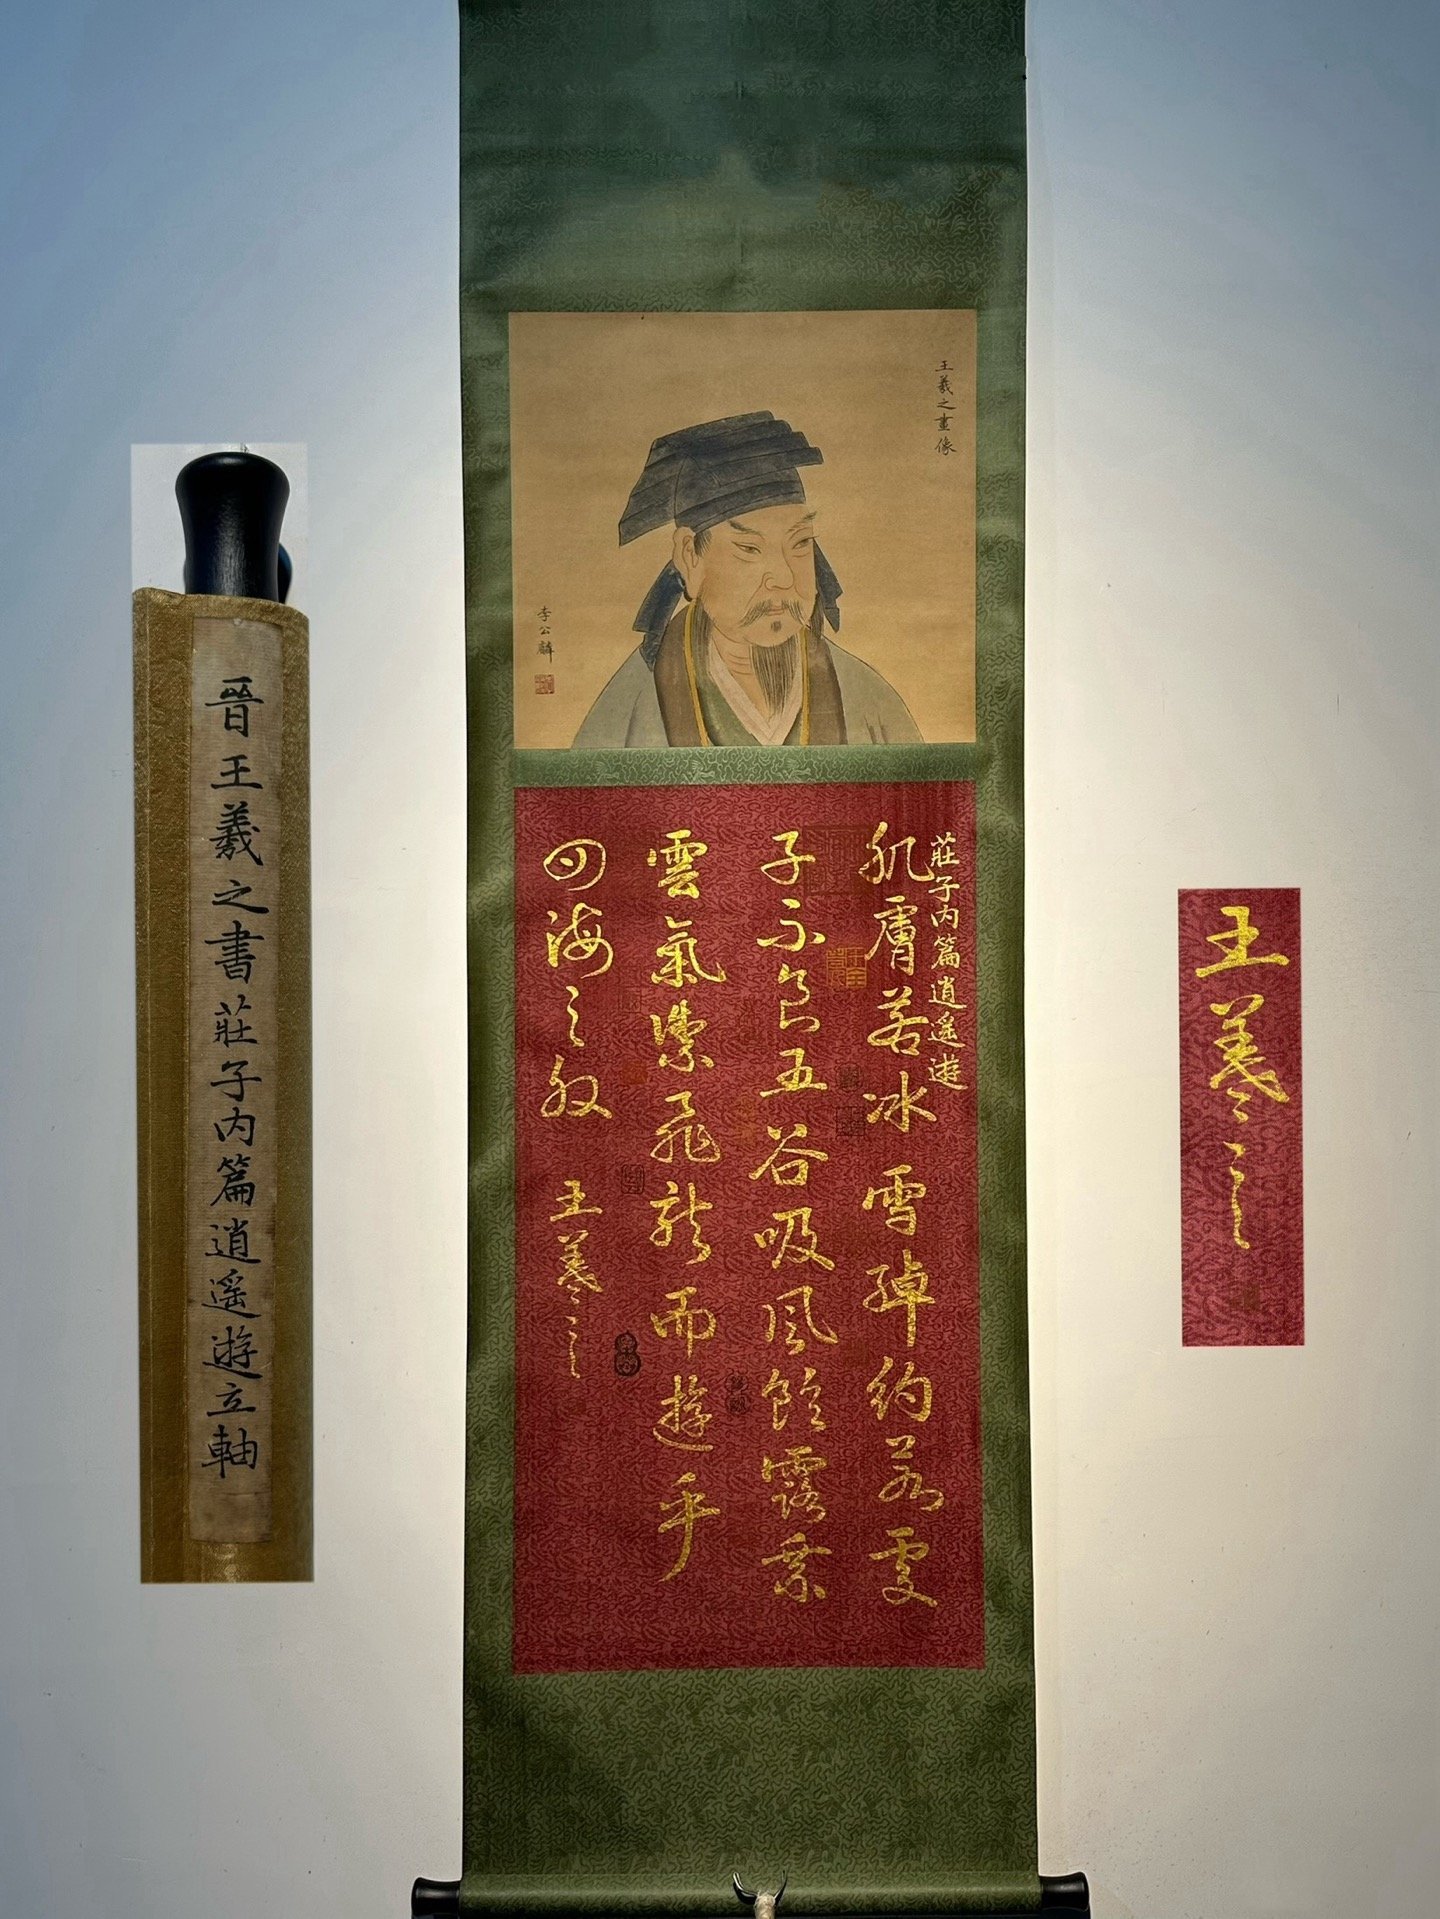 晉王羲之書莊子內篇逍遙遊立軸
王羲之畫像
李公麟
莊子內篇逍遙遊
肌膚若冰雪綽約若處
子不食五谷吸風飲露乘
雲氣御飛龍而遊乎
四海之外
王羲之
王羲之